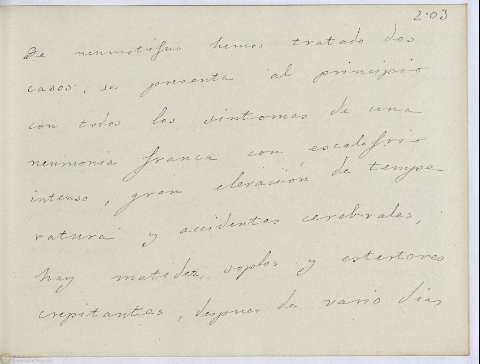 203
De neumotifus hemos tratado dos
casos, se presenta al principio
con todos los sintomas de una
neumonia franca con escalofrio
intenso, gran elevación de tempe
ratura y accidentes cerebrales,
hay matidez, soplos y estertores
crepitantes, despues de vario dias